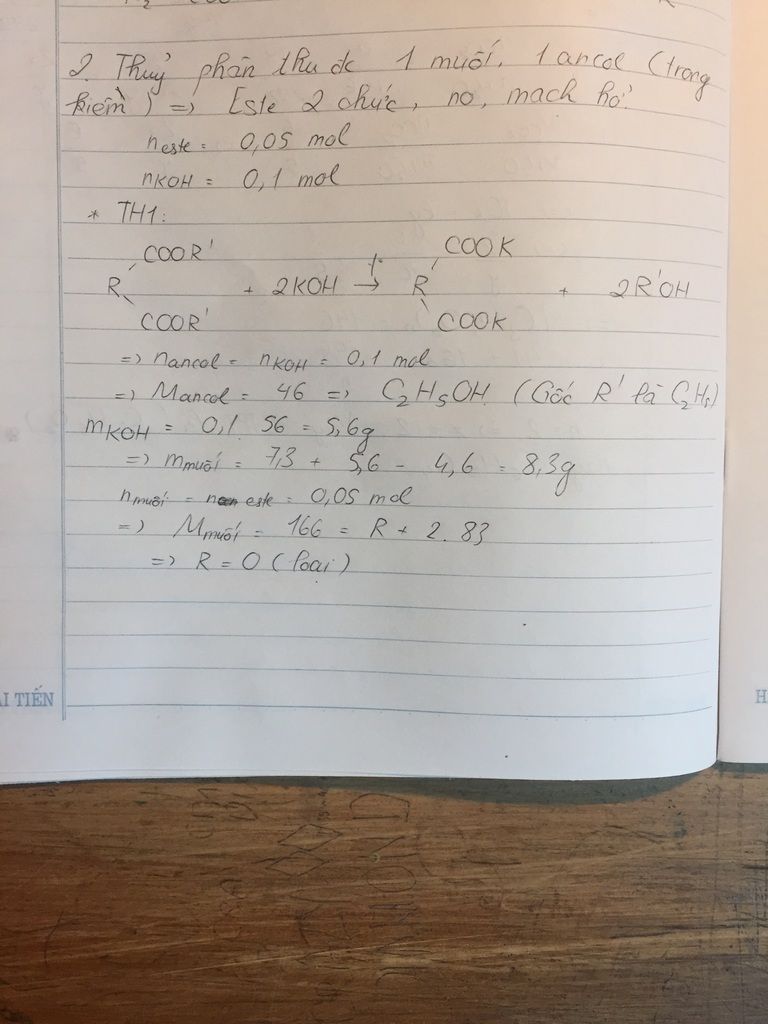 2. Thuỷ phân thu đc 1 muối, 1 ancol (trong
kiềm) => Este 2 chức, no, mạch hở.
n este = 0,05 mol
n KOH = 0,1 mol
* TH1:
COOR' COOK
R + 2KOH t° → R + 2R'OH
COOR' COOK
=> n ancol = n KOH = 0,1 mol
=> M ancol = 46 => C2H5OH (Gốc R' là C2H5)
m KOH = 0,1 . 56 = 5,6g
=> m muối = 7,3 + 5,6 - 4,6 = 8,3g
n muối = n este = 0,05 mol
=> M muối = 166 = R + 2.83
=> R = 0 (loại)
I TIẾN
H